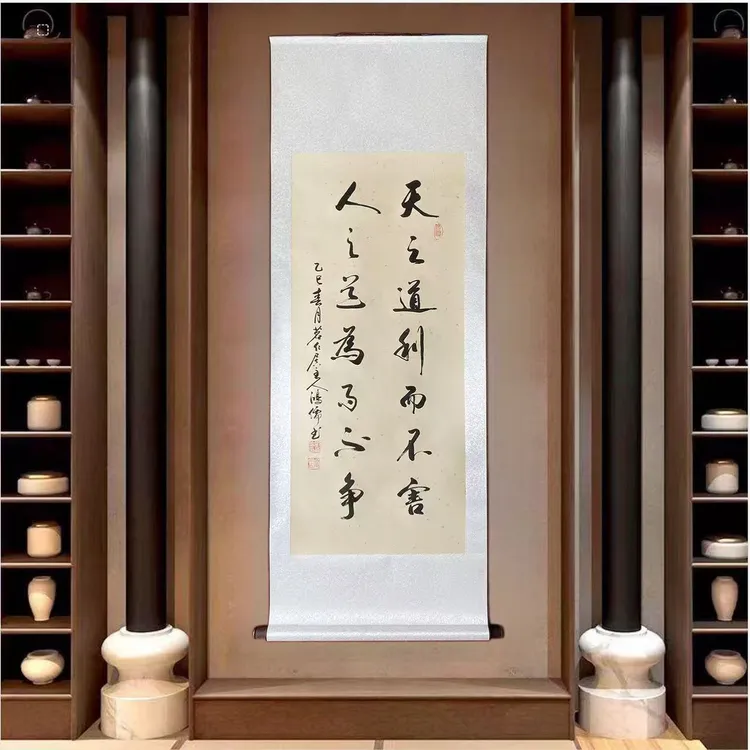 天之道利而不害
人之道為而不争
乙巳春月居主人鴻儒书